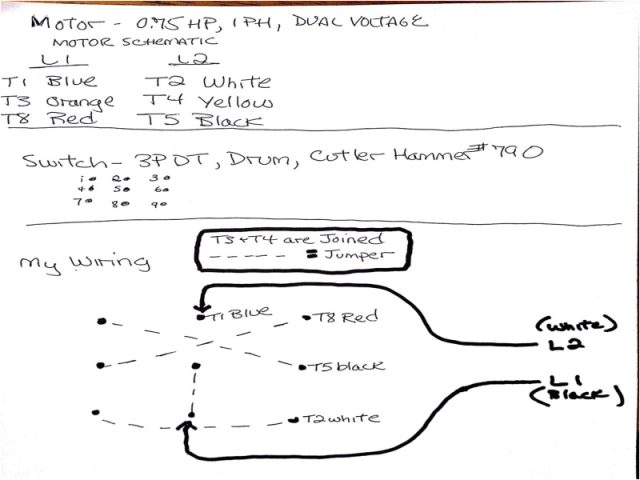 Motor - 0.75 HP, 1 PH, DUAL VOLTAGE
MOTOR SCHEMATIC
L1 L2
T1 Blue T2 White
T3 Orange T4 Yellow
T8 Red T5 Black
Switch - 3PDT, Drum, Cutler Hammer #790
1 2 3
4 5 6
7 8 9
T3 + T4 are Joined
----- = Jumper
My Wiring
T1 Blue T8 Red
(White)
L2
T5 black
L1
(Black)
T2 white